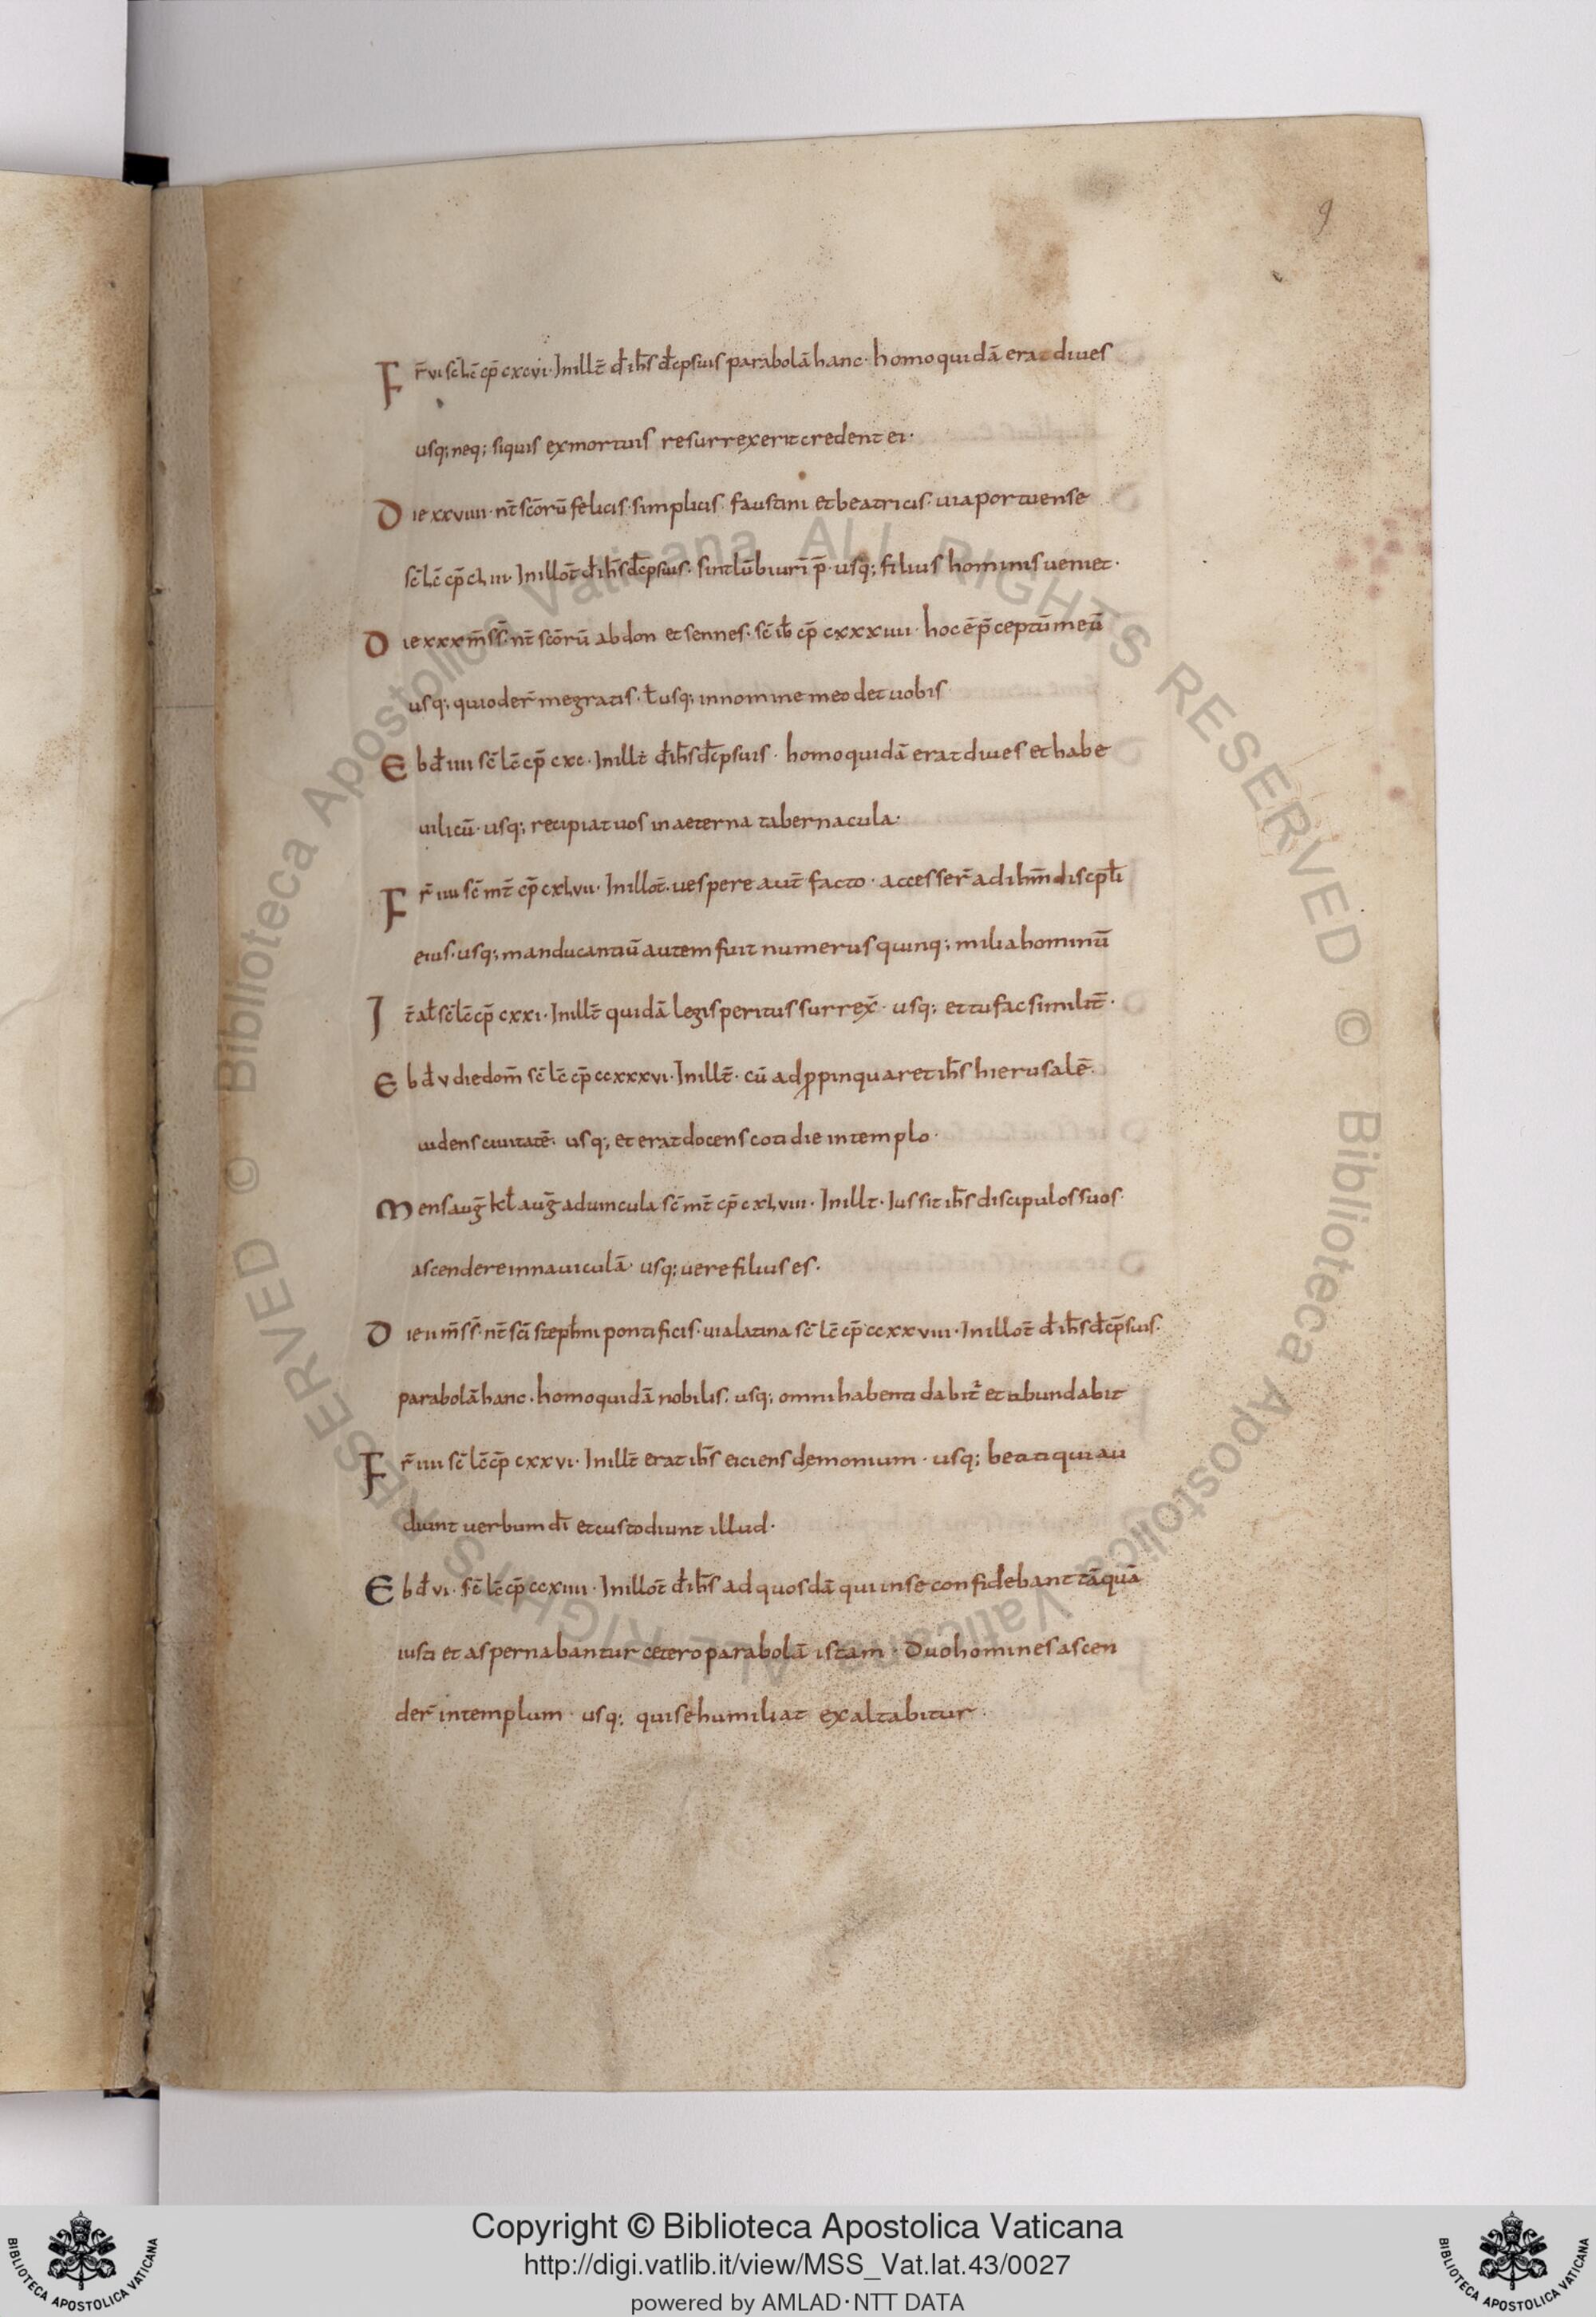 9
Fr̄ vi sc̄ lc̄ cp̄ cxcvi · In illt̄ d̄ ih̄s d̄cpsuis parabolā hanc · homo quidā erat diues
usq; neq; siquis ex mortuis resurrexerit credent ei ·
Die xxviiii · nt̄ scōrū felicis · simplicis · faustini et beatricis · uia portuense
sc̄ lc̄ cp̄ cliii · In illot̄ d̄ ih̄s d̄cpsuis · sint lūbi urī p̄ · usq; filius hominis ueniet ·
Die xxx m̄ s̄s · nt̄ scōrū abdon et sennes · sc̄ ib̄ cp̄ cxxxiiii · hoc ē p̄ceptū meū
usq; quioder̄ me gratis · ł usq; in nomine meo det uobis
Ebd̄ iiii sc̄ lc̄ cp̄ cxc · In illt̄ d̄ ih̄s d̄cpsuis · homo quidā erat diues et habe
uilicū · usq; recipiat uos in aeterna tabernacula ·
Fr̄ iiii sc̄ mt̄ cp̄ cxlvii · In illot̄ · uespere aut̄ facto · accesser̄ ad ihm̄ discpłi
eius · usq; manducantiū autem fuit numerus quinq; milia hominū
It̄ ał sc̄ lc̄ cp̄ cxxi · In illt̄ quidā legis peritus surrex̄ · usq; et tu fac similit̄ ·
Ebd̄ v die dom̄ sc̄ lc̄ cp̄ ccxxxvi · In illt̄ · cū adpropinquaret ih̄s hierusalē
uidens ciuitatē · usq; et erat docens cotidie in templo ·
Mens auḡ kł auḡ ad uincula sc̄ mt̄ cp̄ cxlviii · In illt · Iussit ih̄s discipulos suos
ascendere in nauiculā · usq; uere filius es ·
Die ii m̄ s̄s · nt̄ sc̄i steph̄ni pontificis · uia latina sc̄ lc̄ cp̄ ccxxviii · In illot̄ d̄ ih̄s d̄cp̄suis ·
parabolā hanc · homo quidā nobilis · usq; omni habenti dabit̄ et abundabit
Fr̄ iiii sc̄ lc̄ cp̄ cxxvi · In illt̄ erat ih̄s eiciens demonium · usq; beati qui au
diunt uerbum dī et custodiunt illud ·
Ebd̄ vi · sc̄ lc̄ cp̄ ccxiiii · In illot̄ d̄ ih̄s ad quosdā qui in se confidebant tāquā
iusti et aspernabantur cetero parabolā istam · Duo homines ascen
der̄ in templum · usq; qui se humiliat exaltabitur ·
Biblioteca Apostolica Vaticana ALL RIGHTS RESERVED ©
Biblioteca Apostolica Vaticana ALL RIGHTS RESERVED ©
Copyright © Biblioteca Apostolica Vaticana
http://digi.vatlib.it/view/MSS_Vat.lat.43/0027
powered by AMLAD·NTT DATA
BIBLIOTECA APOSTOLICA VATICANA
BIBLIOTECA APOSTOLICA VATICANA